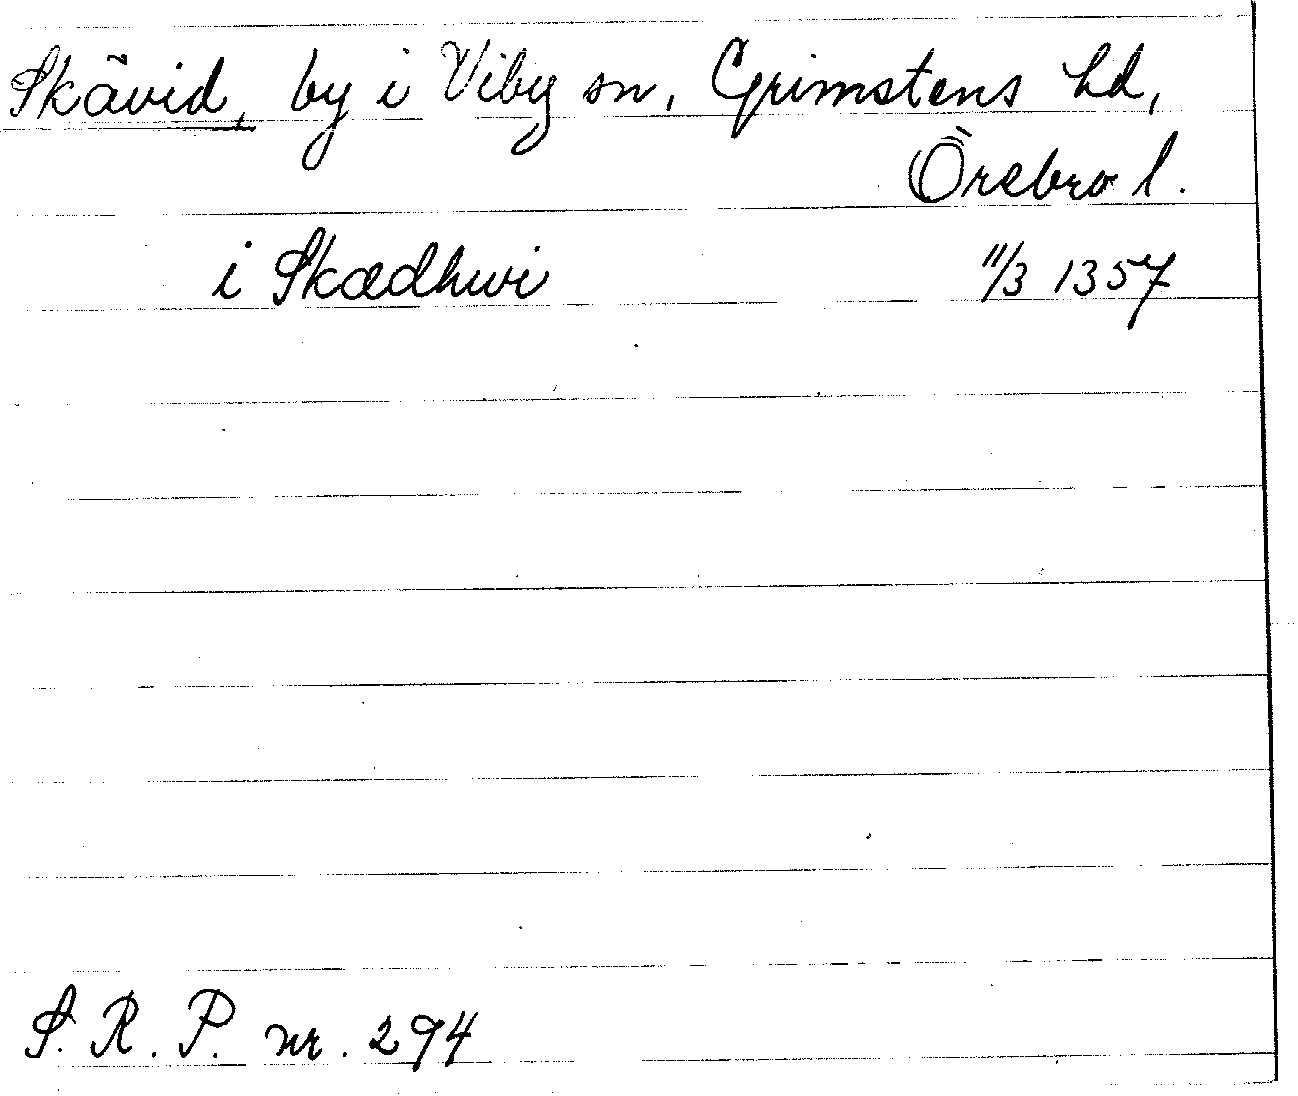 Skävid, by i Viby sn, Grimstens hd,
Örebro l.
i Skædhwi 11/3 1357
S. R. P. nr. 294